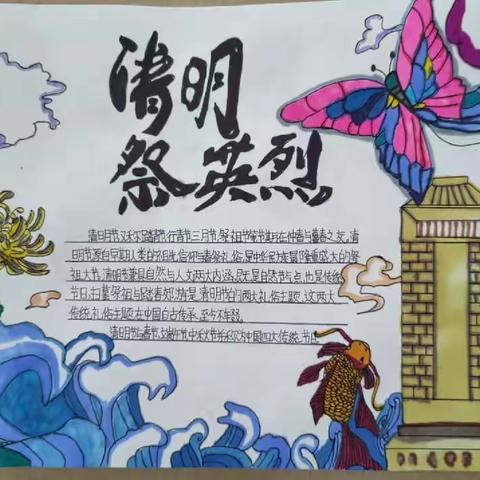 清明
祭英烈
清明节又称踏青节、行清节、三月节、祭祖节等,节期在仲春与暮春之交。清
明节源自早期人类的祖先信仰与春祭礼俗,是中华民族最隆重盛大的祭
祖大节。清明节兼具自然与人文两大内涵,既是自然节气点,也是传统
节日,扫墓祭祖与踏青郊游是清明节的两大礼俗主题,这两大
传统礼俗主题在中国自古传承,至今不辍。
清明节与春节、端午节、中秋节并称为中国四大传统节日。